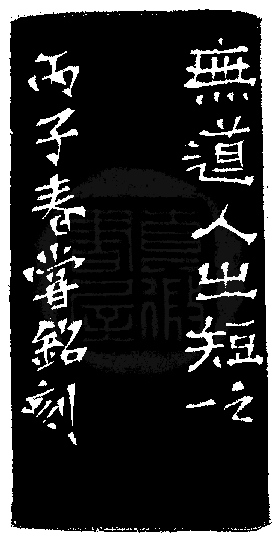 無道人之短之一
丙子春嘗銘刻